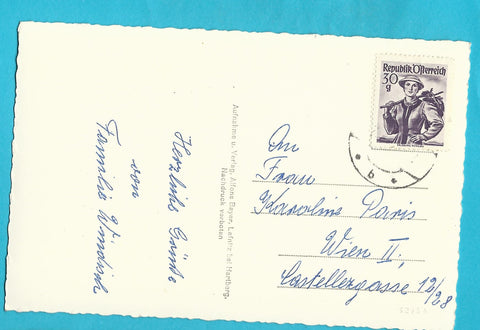 Herzliche Grüße
von
Familie Windisch
Aufnahme u. Verlag Alfons Bayer, Lafnitz bei Hartberg.
Nachdruck verboten
Republik Österreich
30
g
b
An
Frau
Karoline Paris
Wien II.,
Castellezgasse 12/28